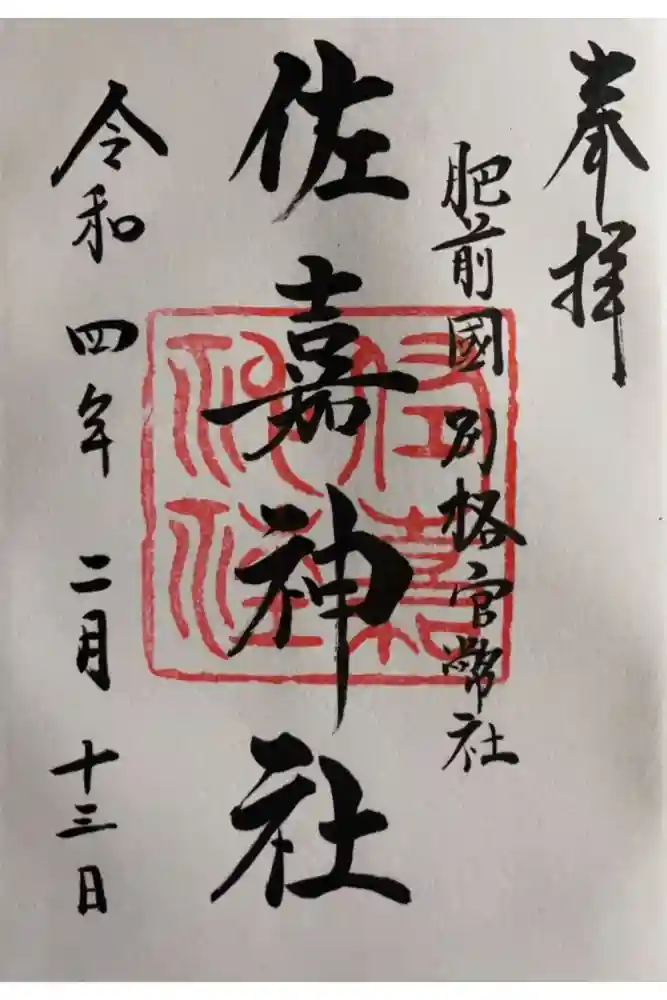 奉拝
肥前國別格官幣社
佐嘉神社
佐嘉神社
令和四年二月十三日